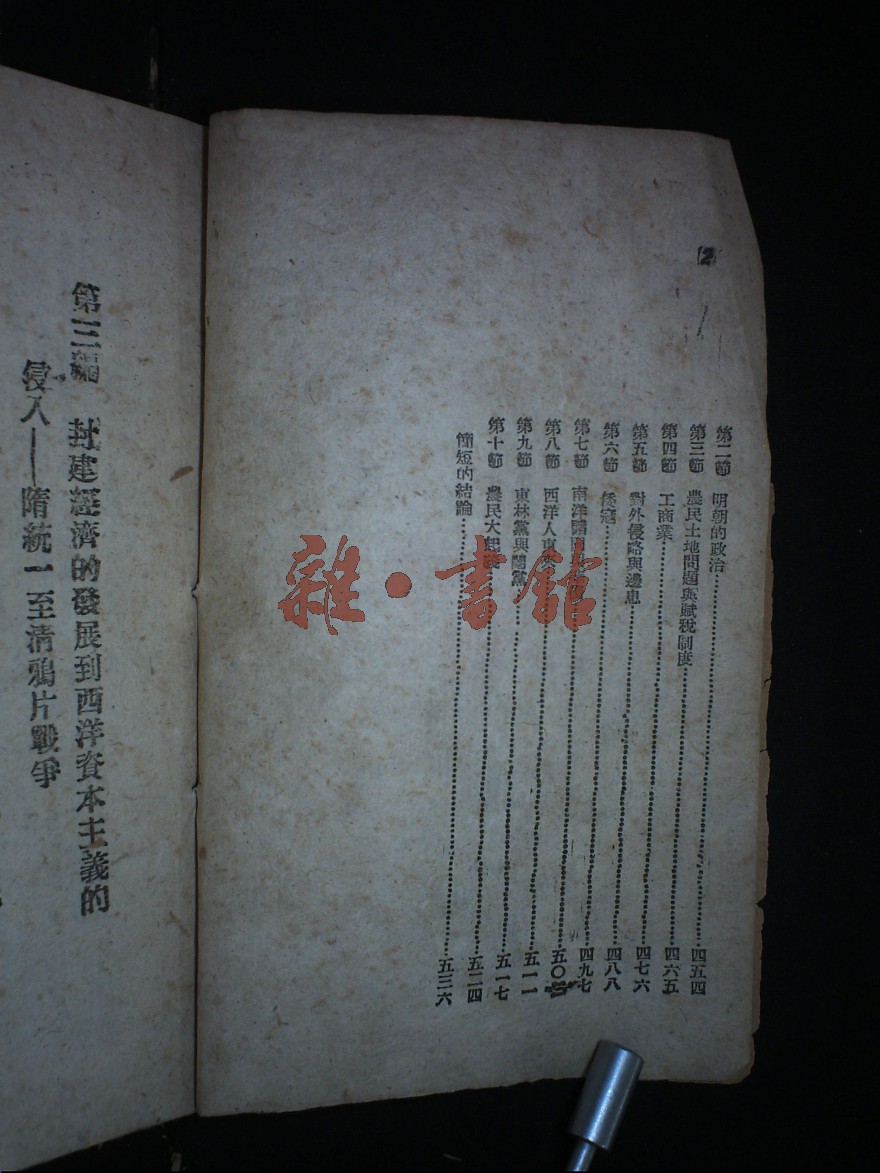 第二節 明朝的政治……四五四
第三節 農民土地問題與賦稅制度……四六五
第四節 工商業……四七六
第五節 對外侵略與邊患……四八八
第六節 倭寇……四九七
第七節 南洋……五〇
第八節 西洋人東……五一一
第九節 東林黨與閹黨……五一七
第十節 農民大起義……五二四
簡短的結論……五三六
第三編 封建經濟的發展到西洋資本主義的
侵入——隋統一至清鴉片戰爭
雜·書館
2